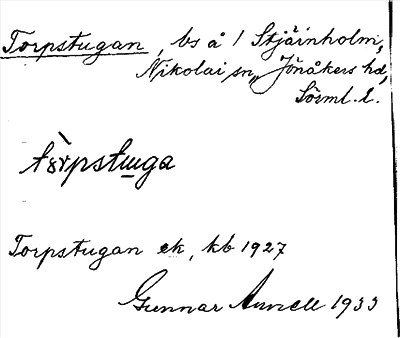 Torpstugan, bs å / Stjärnholm,
Nikolai sn, Jönåkers hd,
Sörml. l.
tòrpstuga
Torpstugan ek, kb 1927
Gunnar 1933